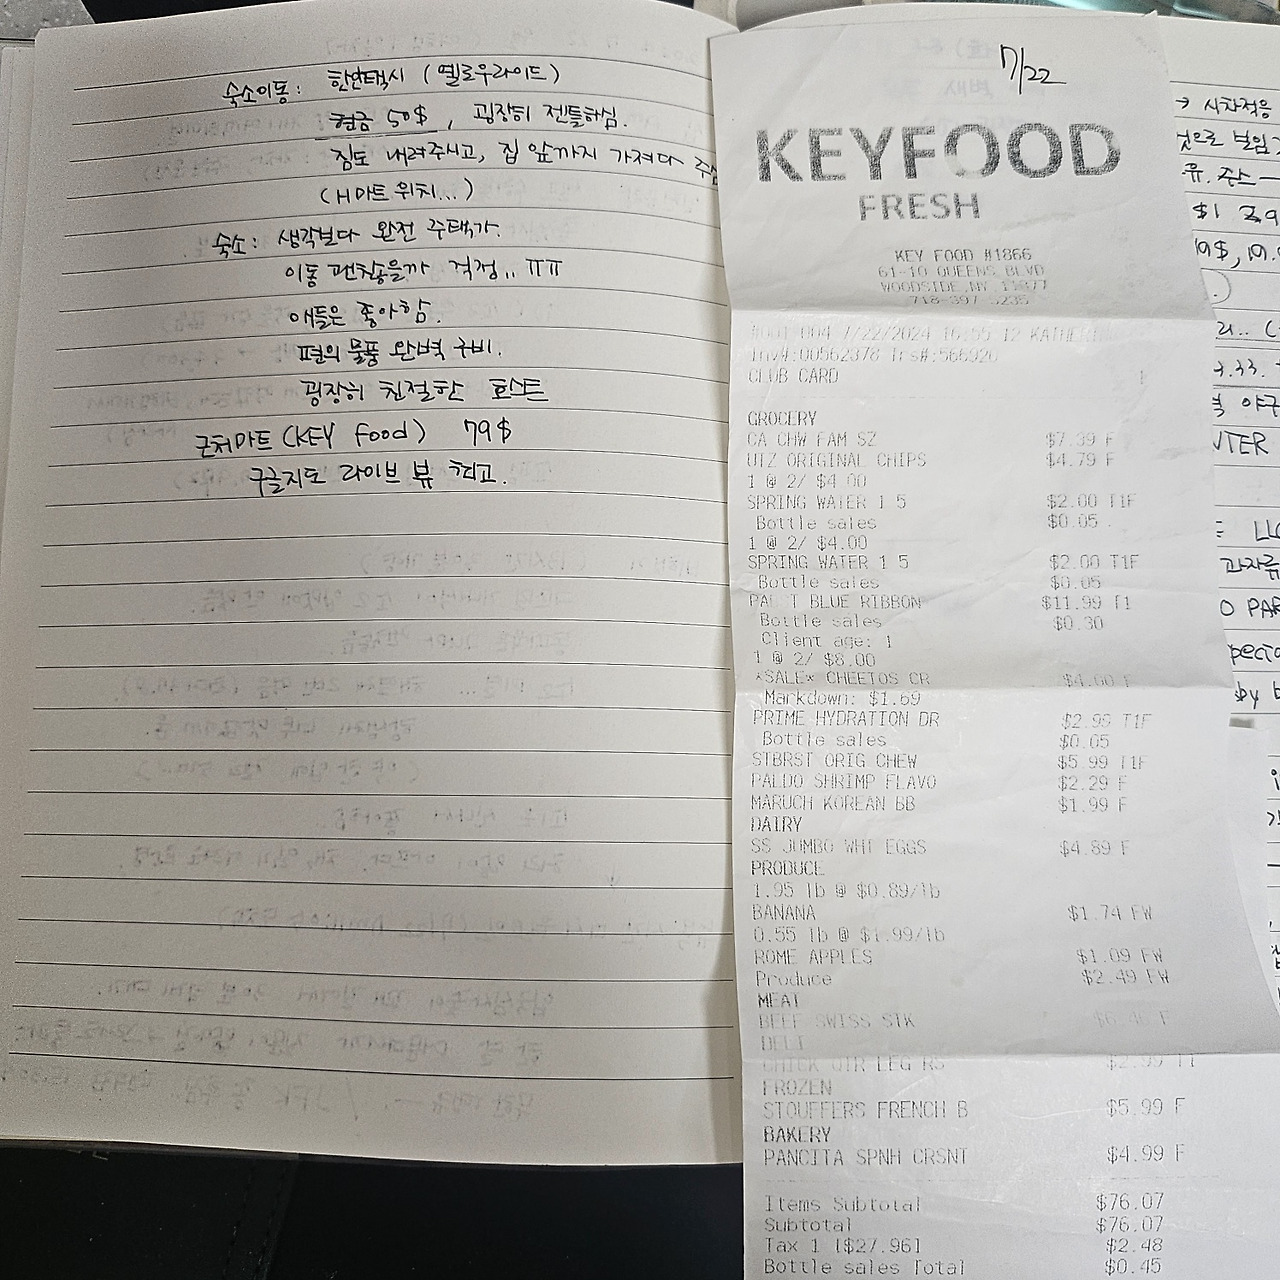 숙소이동: 한인택시 (옐로우라이드)
현금 50$, 굉장히 젠틀하심.
짐도 내려주시고, 집 앞까지 가져다 주
(H마트 위치...)
숙소: 생각보다 완전 주택가.
이동 괜찮을까 걱정.. ㅠㅠ
애들은 좋아함.
편의 물품 완벽 구비.
굉장히 친절한 호스트
근처마트(KEY Food) 79$
구글지도 라이브 뷰 최고.
7/22
KEYFOOD
FRESH
KEY FOOD #1866
61-10 QUEENS BLVD
WOODSIDE,NY 11377
718-397 5235
#001-004 7/22/2024 16:55 12 KATHERI
Inv#:00562378 Trs#:566920
CLUB CARD 1
GROCERY
CA CHW FAM SZ $7.39 F
UTZ ORIGINAL CHIPS $4.79 F
1 @ 2/ $4.00
SPRING WATER 1 5 $2.00 T1F
Bottle sales $0.05
1 @ 2/ $4.00
SPRING WATER 1 5 $2.00 T1F
Bottle sales $0.05
PABST BLUE RIBBON $11.99 T1
Bottle sales $0.30
Client age: 1
1 @ 2/ $8.00
*SALE* CHEETOS CR $4.00 F
Markdown: $1.69
PRIME HYDRATION DR $2.99 T1F
Bottle sales $0.05
STBRST ORIG CHEW $5.99 T1F
PALDO SHRIMP FLAVO $2.29 F
MARUCH KOREAN BB $1.99 F
DAIRY
SS JUMBO WHT EGGS $4.89 F
PRODUCE
1.95 lb @ $0.89/lb
BANANA $1.74 FW
0.55 lb @ $1.99/lb
ROME APPLES $1.09 FW
Produce $2.49 FW
MEAT
BEEF SWISS STK F
DELI
CHICK QTR LEG RS $2.99 T1
FROZEN
STOUFFERS FRENCH B $5.99 F
BAKERY
PANCITA SPNH CRSNT $4.99 F
Items Subtotal $76.07
Subtotal $76.07
Tax 1 [$27.96] $2.48
Bottle sales Total $0.45
→ 시차적응